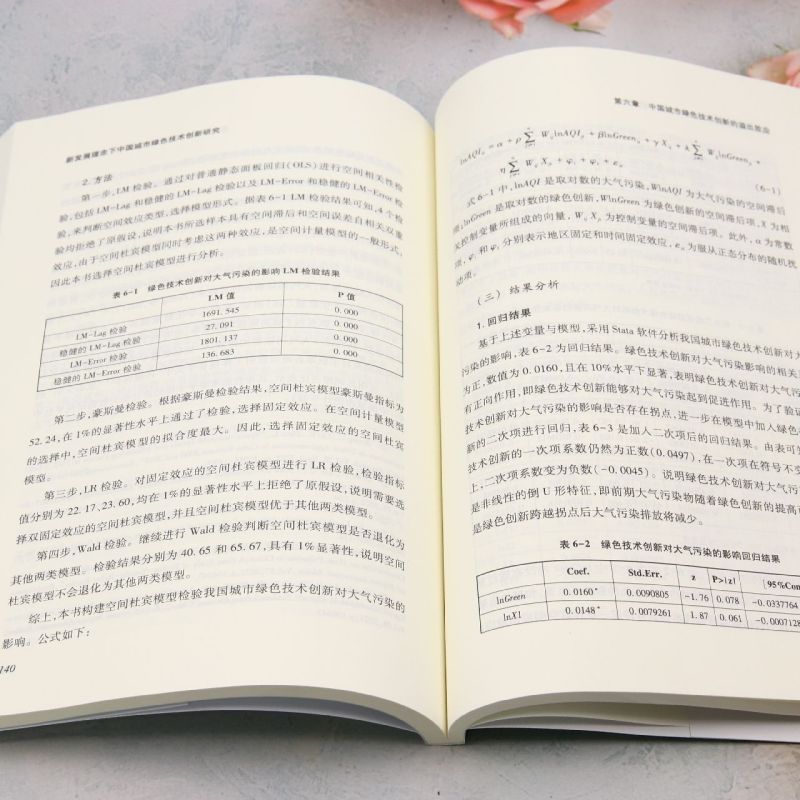 新发展理念下中国城市绿色技术创新研究
2. 方法
第一步,LM 检验。通过对普通静态面板回归(OLS)进行空间相关性检
验,包括 LM-Lag 和稳健的 LM-Lag 检验以及 LM-Error 和稳健的 LM-Error 检
验,来判断空间效应类型,选择模型形式。据表 6-1 LM 检验结果可知,4 个检
验均拒绝了原假设,说明本书所选样本具有空间滞后和空间误差自相关双重
效应,由于空间杜宾模型同时考虑这两种效应,是空间计量模型的一般形式,
因此本书选择空间杜宾模型进行分析。
表 6-1 绿色技术创新对大气污染的影响 LM 检验结果
LM 值 P 值
LM-Lag 检验 1691.545 0.000
稳健的 LM-Lag 检验 27.091 0.000
LM-Error 检验 1801.137 0.000
稳健的 LM-Error 检验 136.683 0.000
第二步,豪斯曼检验。根据豪斯曼检验结果,空间杜宾模型豪斯曼指标为
52.24,在 1%的显著性水平上通过了检验,选择固定效应。在空间计量模型
的选择中,空间杜宾模型的拟合度最大。因此,选择固定效应的空间杜宾
模型。
第三步,LR 检验。对固定效应的空间杜宾模型进行 LR 检验,检验指标
值分别为 22.17、23.60,均在 1%的显著性水平上拒绝了原假设,说明需要选
择双固定效应的空间杜宾模型,并且空间杜宾模型优于其他两类模型。
第四步,Wald 检验。继续进行 Wald 检验判断空间杜宾模型是否退化为
其他两类模型。检验结果分别为 40.65 和 65.67,具有 1%显著性,说明空间
杜宾模型不会退化为其他两类模型。
综上,本书构建空间杜宾模型检验我国城市绿色技术创新对大气污染的
影响。公式如下:
140
第六章 中国城市绿色技术创新的溢出效应
(6-1)
式 6-1 中,lnAQI 是取对数的大气污染,WlnAQI 为大气污染的空间滞后
项,lnGreen 是取对数的绿色创新,WlnGreen 为绿色创新的空间滞后项,X 为相
关控制变量所组成的向量,W_{ij} X_{it} 为控制变量的空间滞后项。此外,α 为常数
项,φ_i 和 φ_t 分别表示地区固定和时间固定效应,ε_{it} 为服从正态分布的随机扰
动项。
(三) 结果分析
1. 回归结果
基于上述变量与模型,采用 Stata 软件分析我国城市绿色技术创新对大
污染的影响,表 6-2 为回归结果。绿色技术创新对大气污染影响的相关
为正,数值为 0.0160,且在 10%水平下显著,表明绿色技术创新对大气污染
有正向作用,即绿色技术创新能够对大气污染起到促进作用。为了验证
技术创新对大气污染的影响是否存在拐点,进一步在模型中加入绿色
新的二次项进行回归,表 6-3 是加入二次项后的回归结果。由表可
技术创新的一次项系数仍然为正数(0.0497),在一次项在符号不变
上,二次项系数变为负数(-0.0045)。说明绿色技术创新对大气污
是非线性的倒 U 形特征,即前期大气污染物随着绿色创新的提高而
是绿色创新跨越拐点后大气污染排放将减少。
表 6-2 绿色技术创新对大气污染的影响回归结果
Coef. Std.Err. z P>|z| [95%Con
lnGreen 0.0160* 0.0090805 -1.76 0.078 -0.0337764
lnX1 0.0148* 0.0079261 1.87 0.061 -0.0007128